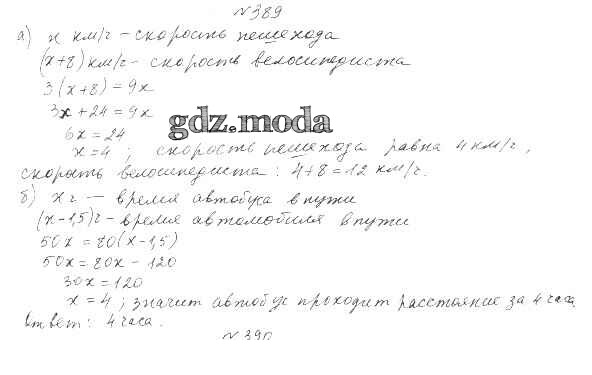 №389
а) х км/ч - скорость пешехода
(х+8) км/ч - скорость велосипедиста
3(х+8) = 9х
3х + 24 = 9х
gdz.moda
6х = 24
х = 4 ; скорость пешехода равна 4 км/ч,
скорость велосипедиста: 4+8=12 км/ч.
б) х ч — время автобуса в пути
(х-1,5)ч - время автомобиля в пути
50х = 80(х-1,5)
50х = 80х - 120
30х = 120
х = 4 ; значит автобус проходит расстояние за 4 часа
Ответ: 4 часа.
№390